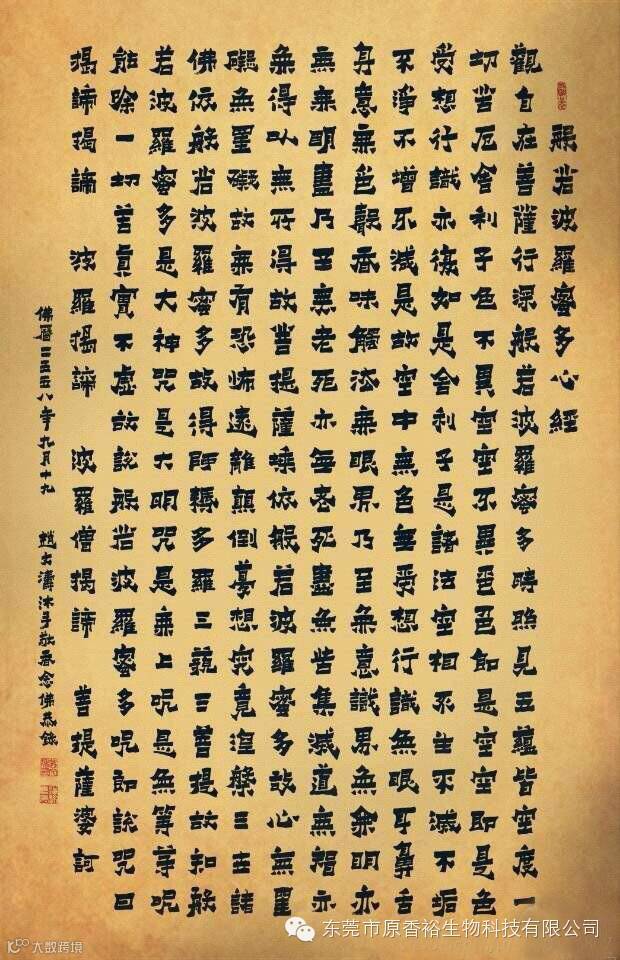 般若波羅蜜多心經
觀自在菩薩行深般若波羅蜜多時照見五蘊皆空度一
切苦厄舍利子色不異空空不異色色即是空空即是色
受想行識亦復如是舍利子是諸法空相不生不滅不垢
不淨不增不減是故空中無色無受想行識無眼耳鼻舌
身意無色聲香味觸法無眼界乃至無意識界無無明亦
無無明盡乃至無老死亦無老死盡無苦集滅道無智亦
無得以無所得故菩提薩埵依般若波羅蜜多故心無罣
礙無罣礙故無有恐怖遠離顛倒夢想究竟涅槃三世諸
佛依般若波羅蜜多故得阿耨多羅三藐三菩提故知般
若波羅蜜多是大神咒是大明咒是無上咒是無等等咒
能除一切苦真實不虛故說般若波羅蜜多咒即說咒曰
揭諦揭諦 波羅揭諦 波羅僧揭諦 菩提薩婆訶
佛曆二五五八年九月十九 趙大濤沐手敬香念佛恭錄
东莞市原香裕生物科技有限公司
大数跨境